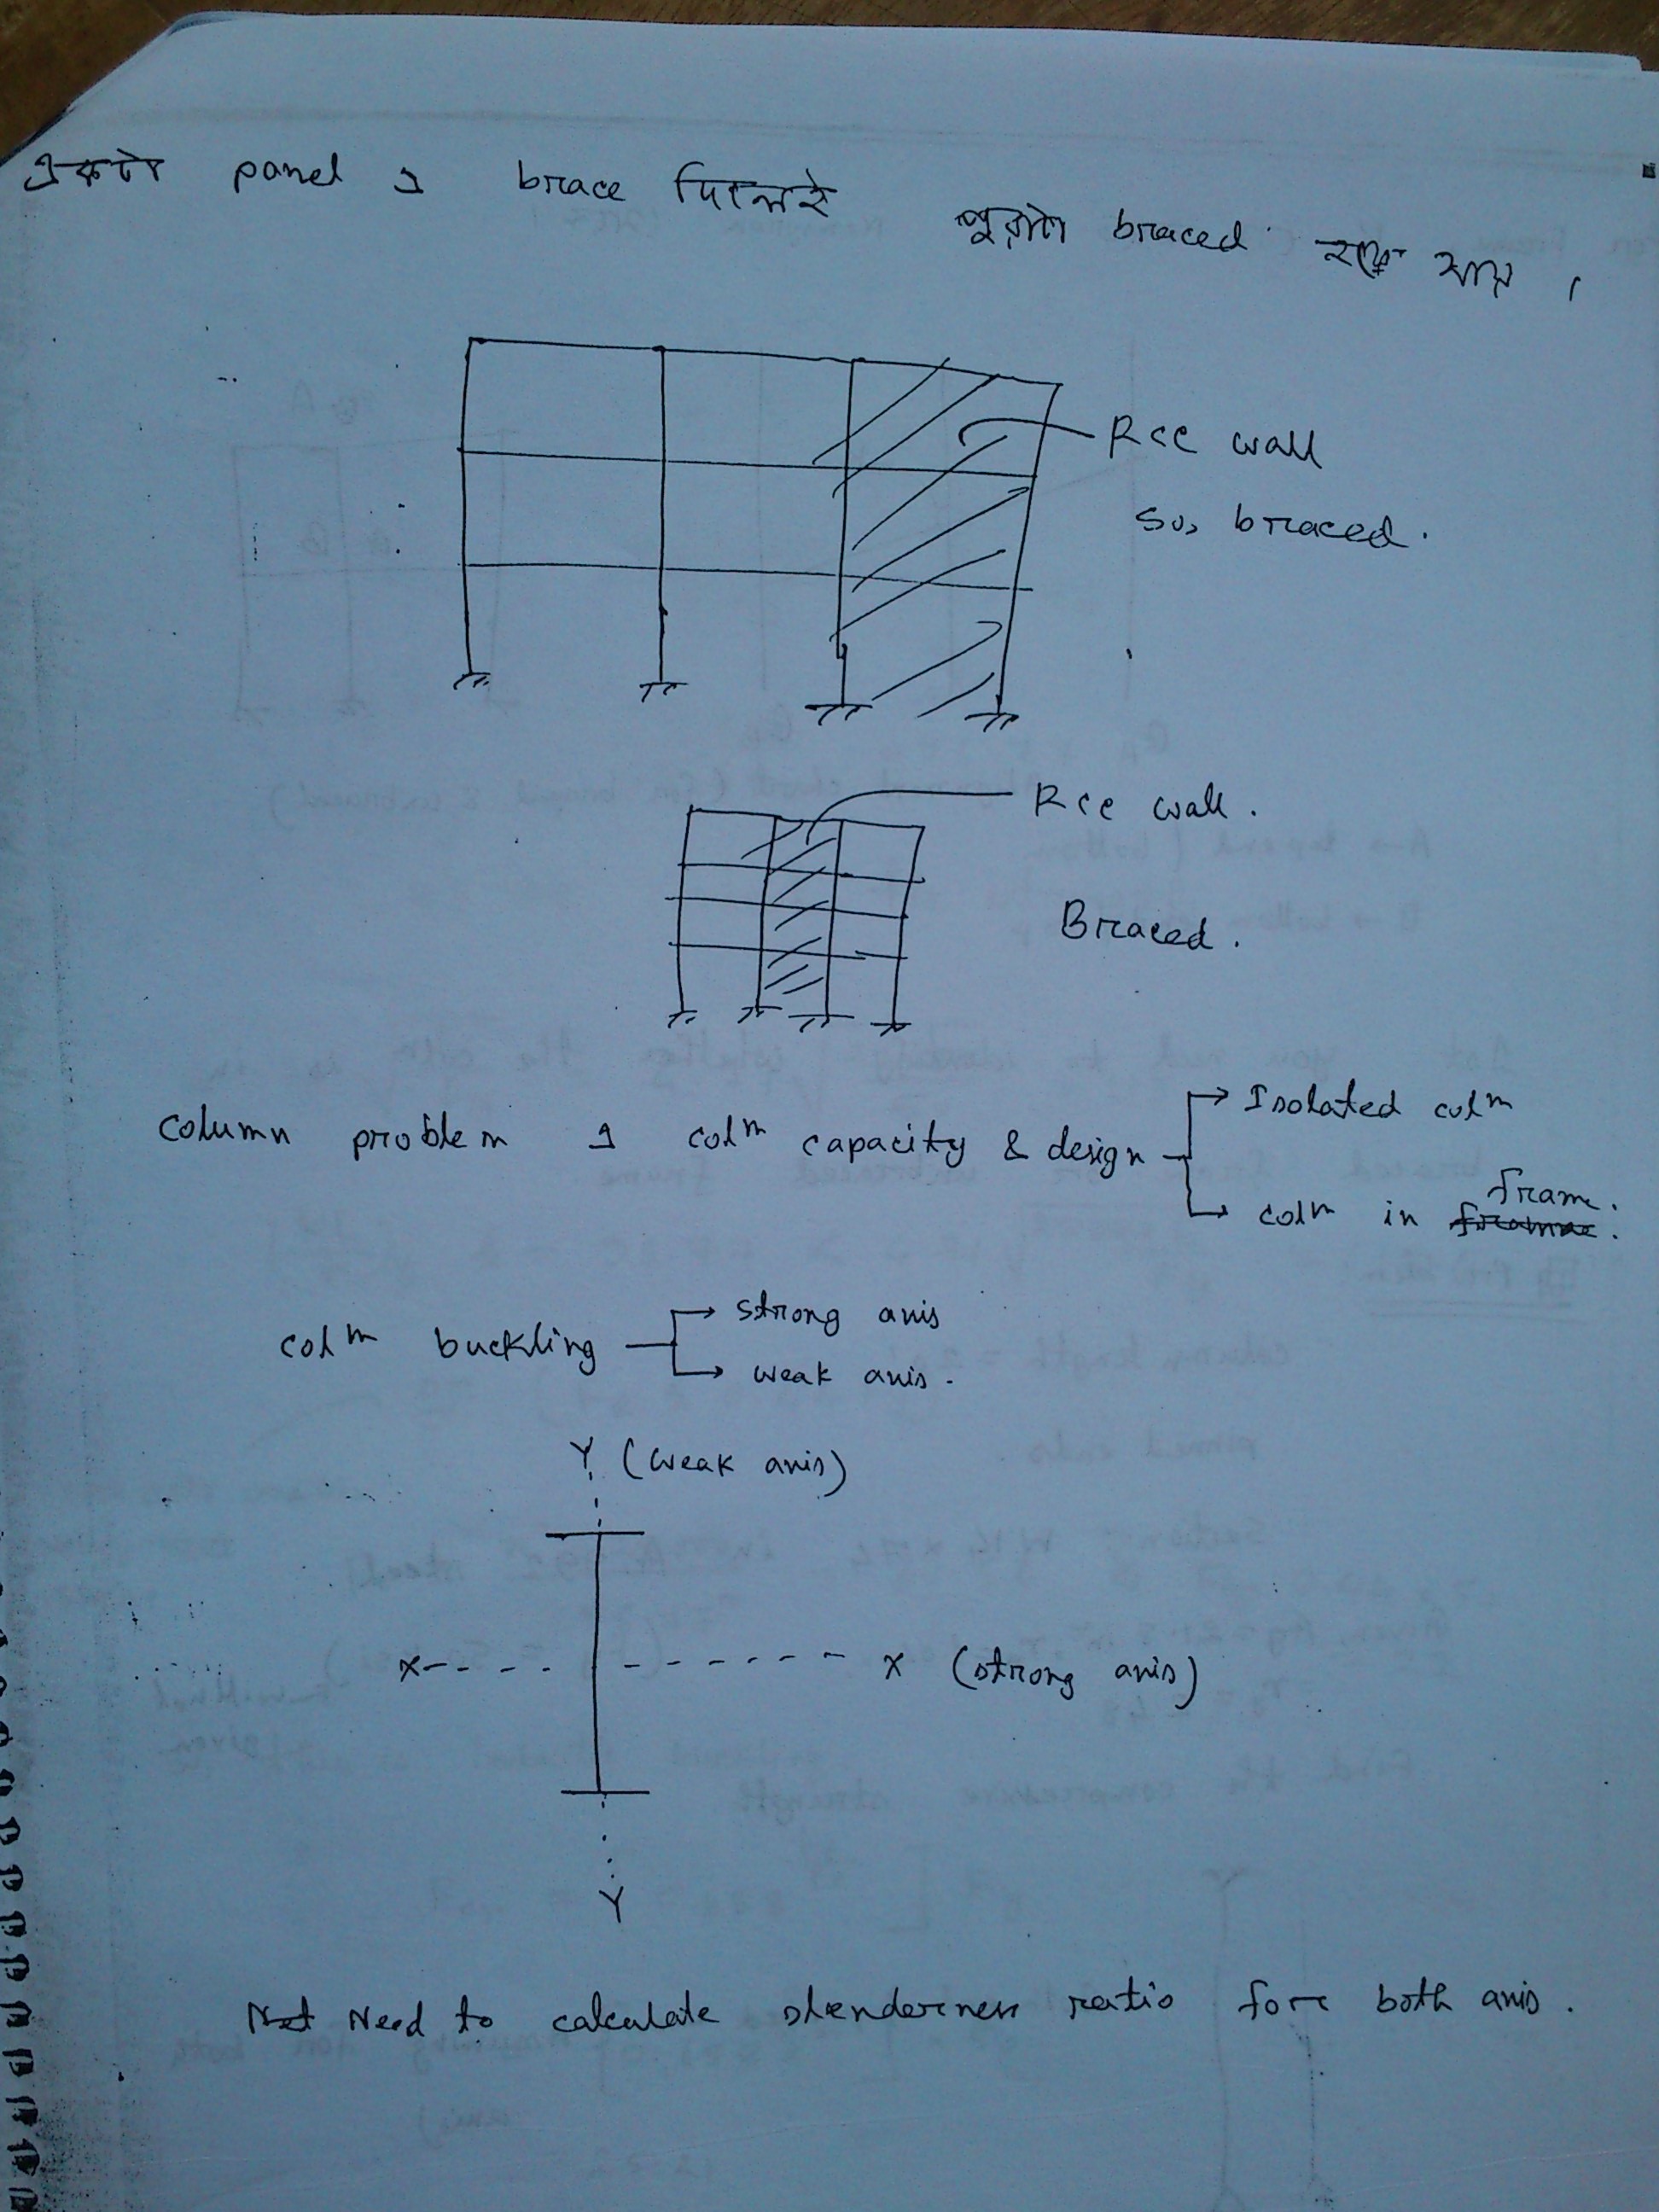 একটা panel এ brace দিলেই পুরাটা braced হয়ে যায় ।
Rcc wall
So, braced.
Rcc wall.
Braced.
column problem এ colm capacity & design → Isolated colm
→ colm in frame.
colm buckling → strong axis
→ weak axis.
Y (weak axis)
X X (strong axis)
Y
Need to calculate slenderness ratio for both axis.